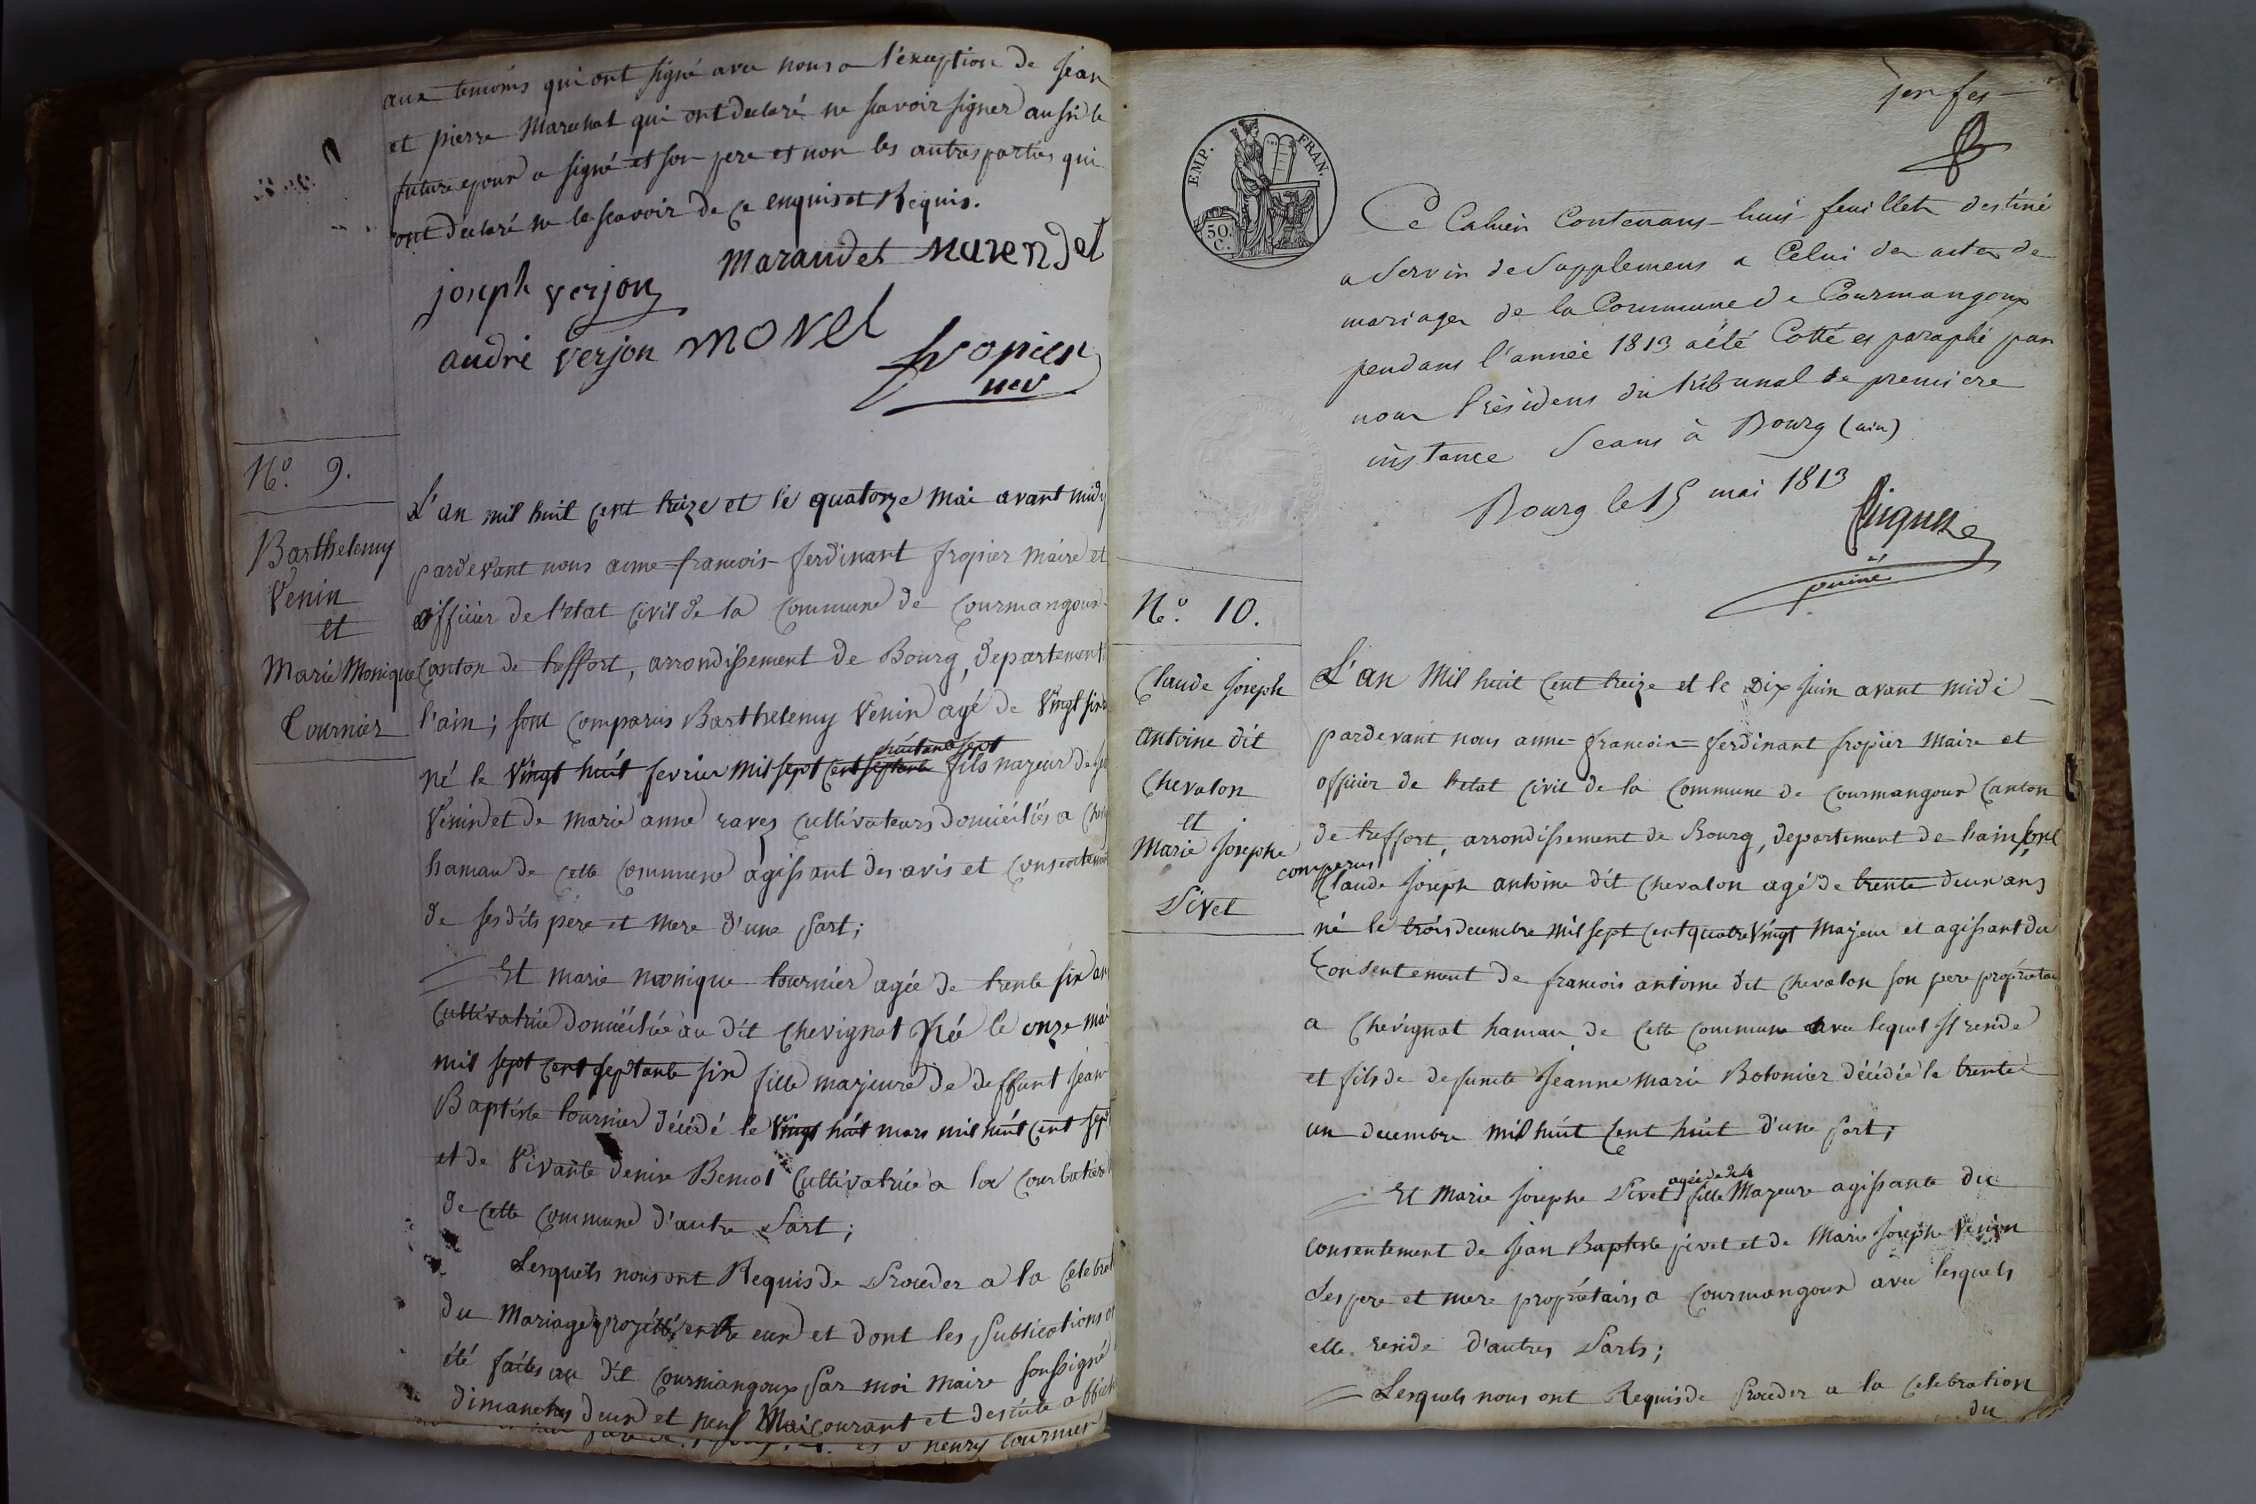 aux temoins qui ont signé avec nous a l'exeption de jean
et pierre Marechal qui ont declaré ne scavoir signer aussi le
future epoux a signé et son pere et non les autres parties qui
ont declaré ne le scavoir de ce enquis et Requis.
joseph verjon
andré verjon
maraudet
morel
fropier
N.o 9.
Barthelemy
Venin
et
Marie Monique
Tournier
L'an mil huit cent treize et le quatorze mai avant midy
pardevant nous aime francois ferdinant fropier maire et
officier de l'etat civil de la commune de courmangoux
canton de treffort, arrondissement de Bourg, departement
l'ain; sont comparus Barthelemy Venin agé de Vingt six
né le Vingt huit fevrier mil sept cent septante huitante sept fils majeur de
Venin et de marie anne ravex cultivateurs domiciliés a
hamau de cette commune agissant des avis et consentement
de ses dits père et mere d'une part;
Et marie monique tournier agée de trente six ans
cultivatrice domiciliée au dit chevignat Née le onze mai
mil sept cent septante six fille majeure de deffunt jean
Baptiste tournier décédé le Vingt huit mars mil huit cent sept
et de vivante denise Benoit cultivatrice a la courbatiere
de cette commune d'autre Part;
Lesquels nous ont Requis de Proceder a la celebrat
du mariage projetté entre eux et dont les Publications
été faites au dit courmangoux Par moi maire soussigné
dimanches deux et neuf Mai courant et desuite
henry tournier
EMP. FRAN.
50.
C.
Ce Cahier Contenant huit feuillets destiné
a Servir de Supplement a Celui des actes de
mariages de la Commune de Courmangoux
pendant l'année 1813 a été Cotté et paraphé par
nous Président du tribunal de premiere
instance Seant à Bourg (ain)
Bourg le 15 mai 1813
N.o 10.
Claude joseph
antoine dit
Chevalon
et
Marie josephe
Pivet
L'an Mil huit cent treize et le Dix juin avant midi
pardevant nous aime francois ferdinant fropier maire et
officier de l'etat civil de la commune de courmangoux canton
de treffort, arrondissement de Bourg, departement de l'ain sont
comparus
Claude joseph antoine dit chevalon agé de trente deux ans
né le trois decembre mil sept cent quatre Vingt majeur et agissant du
Consentement de francois antoine dit chevalon son pere proprietaire
a chevignat hamau de cette commune avec lequel il reside
et fils de defuncte jeanne marie Botonier décédée le trente
un decembre mil huit cent huit d'une Part;
Et marie josephe Pivet agée de 24 fille majeure agissante du
consentement de jean Baptiste pivet et de Marie josephe Venion
ses pere et mere propriétairs a courmangoux avec lesquels
elle reside d'autres Parts;
Lesquels nous ont Requis de Proceder a la celebration
du